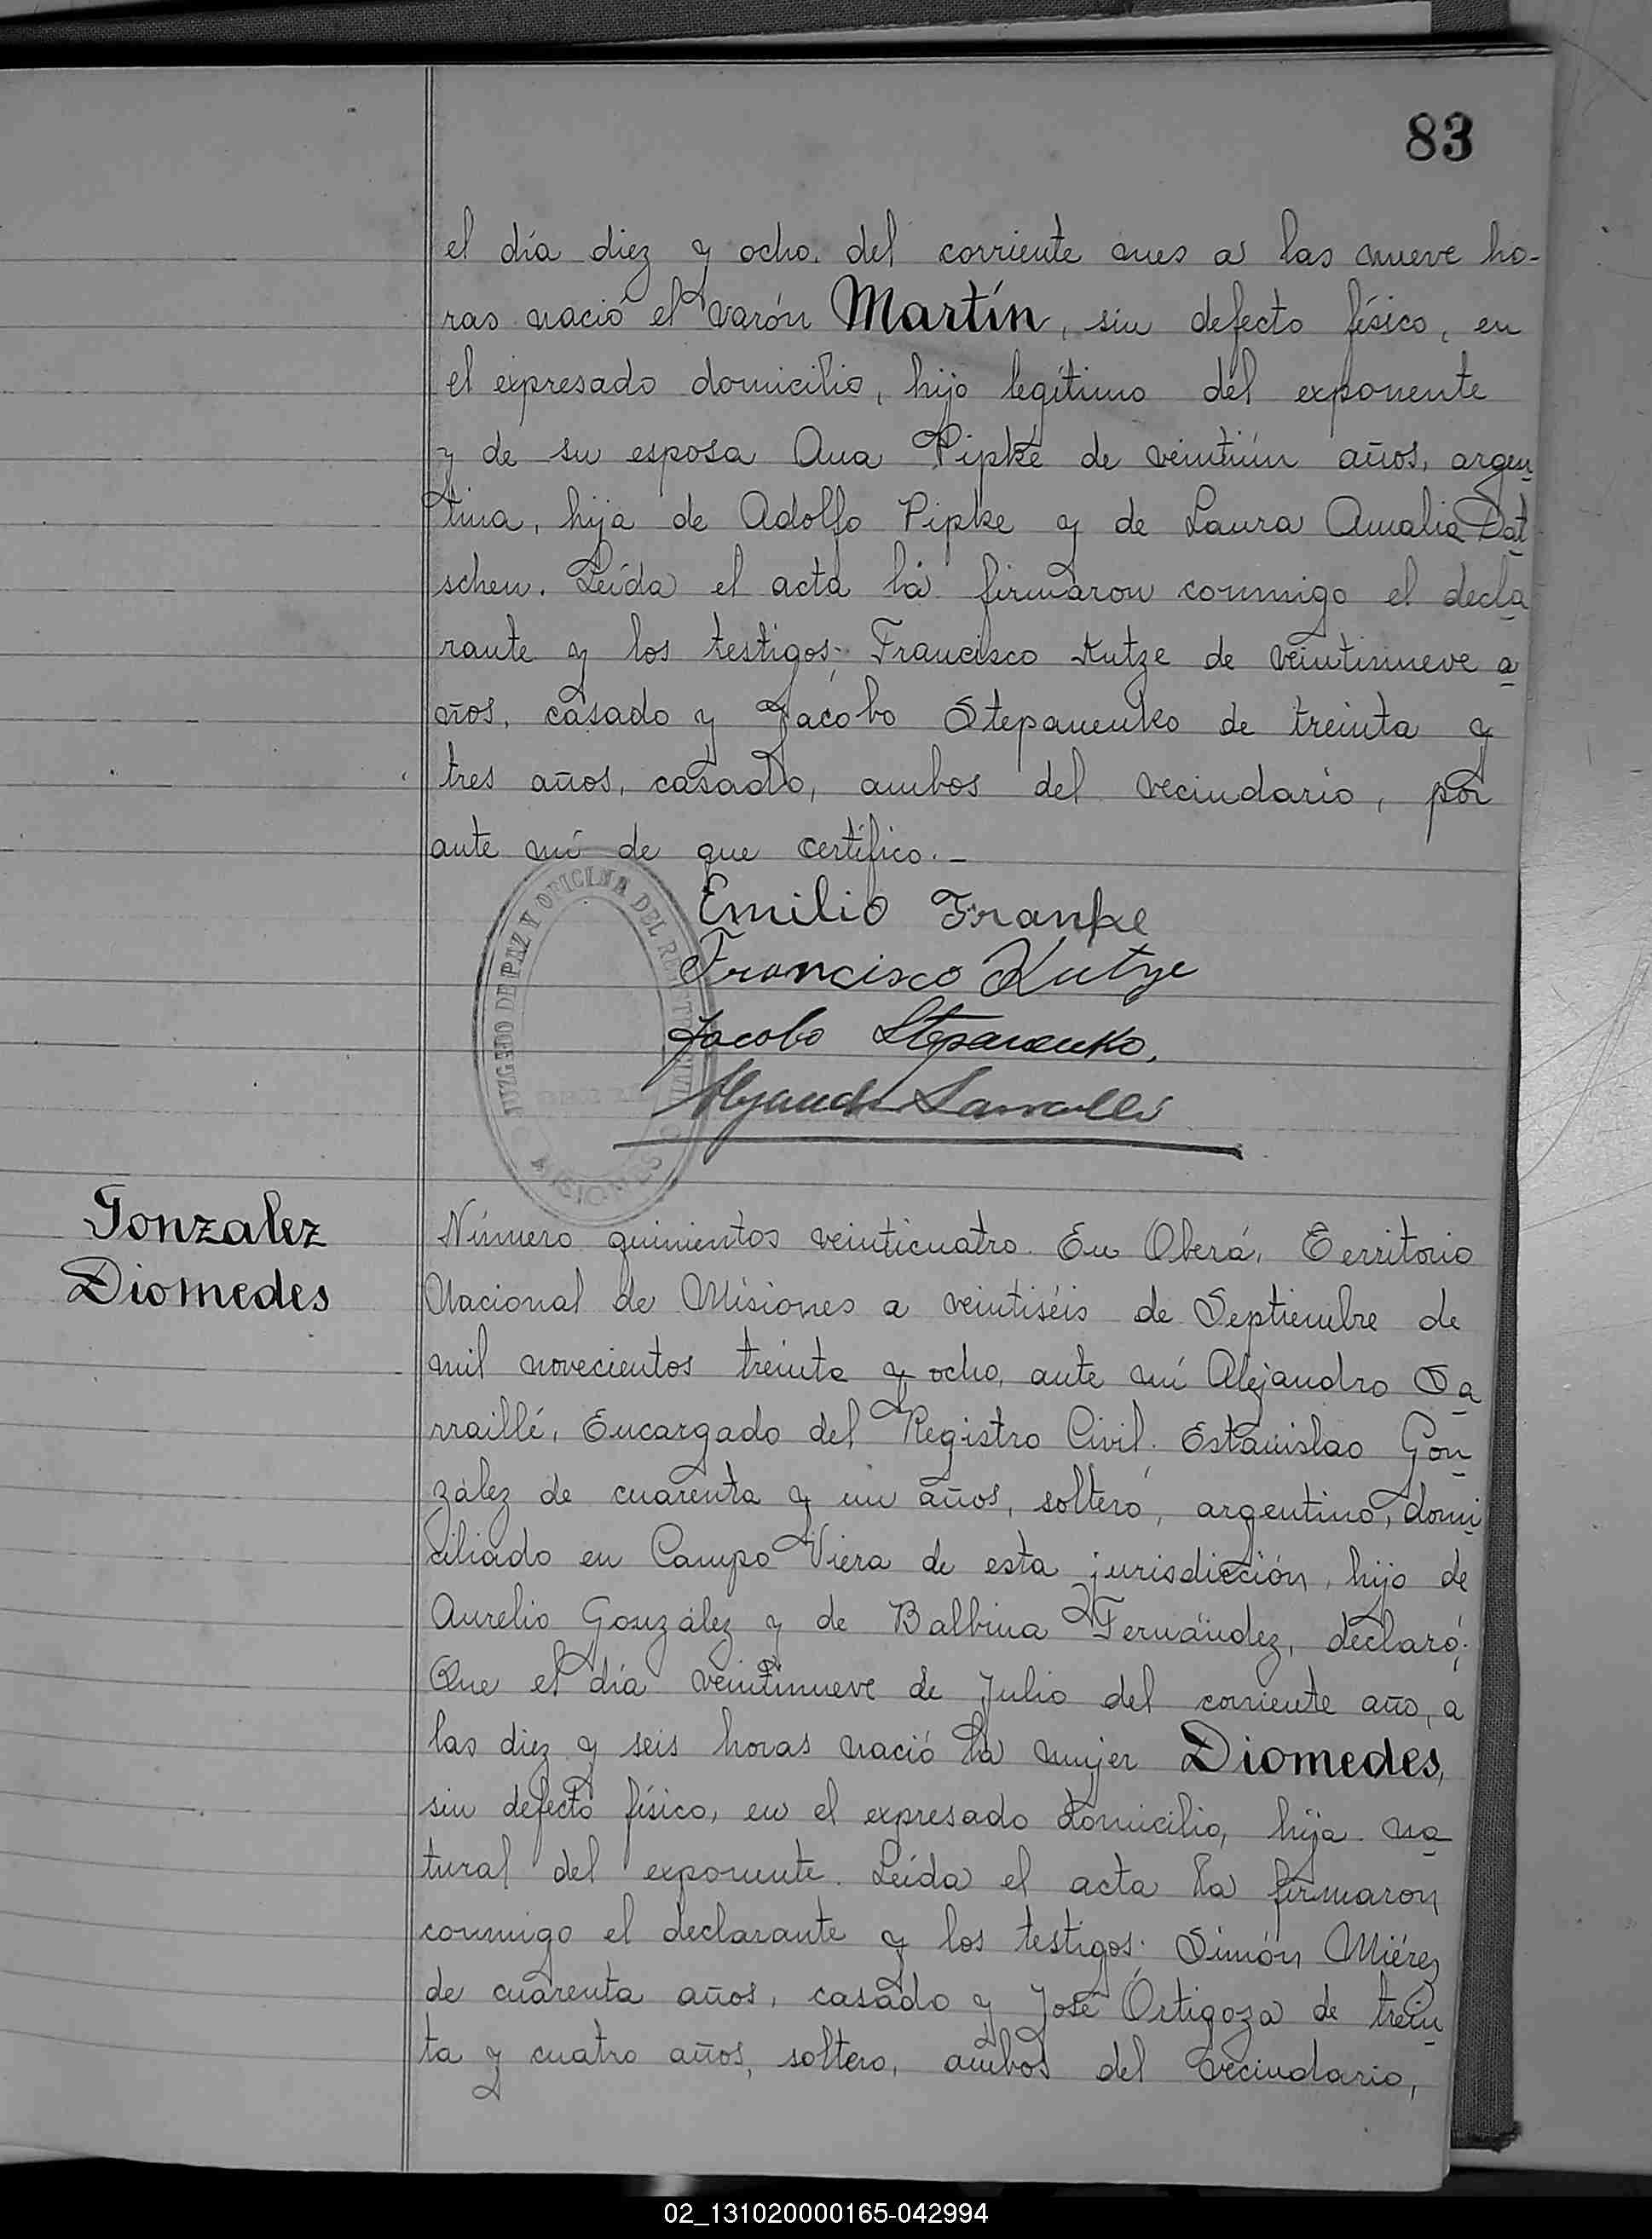 83
el día diez y ocho. del corriente mes a las nueve ho-
ras nació el varón Martín, sin defecto físico, en
el expresado domicilio, hijo legítimo del exponente
y de su esposa Ana Pipke de veintiún años, argen
tina, hija de Adolfo Pipke y de Laura Amalia Dat
schen. Leída el acta la firmaron conmigo el decla
rante y los testigos: Francisco Kutze de veintinueve a
años, casado y Jacobo Stepanenko de treinta y
tres años, casado, ambos del vecindario, por
ante mí de que certifico.-
JUZGADO DE PAZ Y OFICINA DEL REGISTRO CIVIL
MISIONES
Emilio Franke
Francisco Kutze
Jacobo Stepanenko.
Alejandro Sarraillé
Gonzalez
Diomedes
Número quinientos veinticuatro. En Oberá, Territorio
Nacional de Misiones a veintiséis de Septiembre de
mil novecientos treinta y ocho, ante mí Alejandro Sa
rraillé, Encargado del Registro Civil. Estanislao Gon
zález de cuarenta y un años, soltero, argentino, domi
ciliado en Campo Viera de esta jurisdicción, hijo de
Aurelio González y de Balbina Fernández, declaró:
Que el día veintinueve de Julio del corriente año, a
las diez y seis horas nació la mujer Diomedes,
sin defecto físico, en el expresado domicilio, hija na
tural del exponente. Leída el acta la firmaron
conmigo el declarante y los testigos: Simón Miérez
de cuarenta años, casado y José Ortigoza de trein
ta y cuatro años, soltero, ambos del vecindario,
02_131020000165-042994